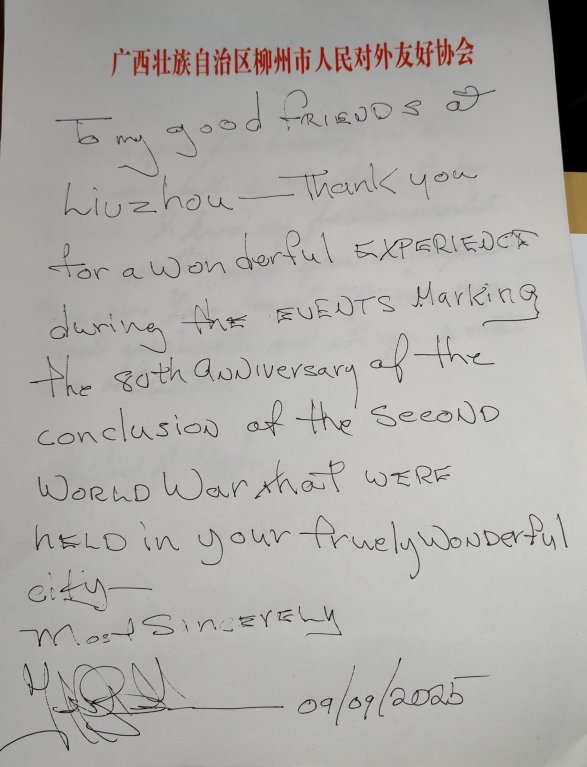 广西壮族自治区柳州市人民对外友好协会
To my good FRIENDS at
Liuzhou — Thank you
for a wonderful EXPERIENCE
during the EVENTS Marking
the 80th ANNIVERSARY of the
conclusion of the SECOND
WORLD War that WERE
HELD in your truely WONDERful
city —
Most SINCERELY
09/09/2025